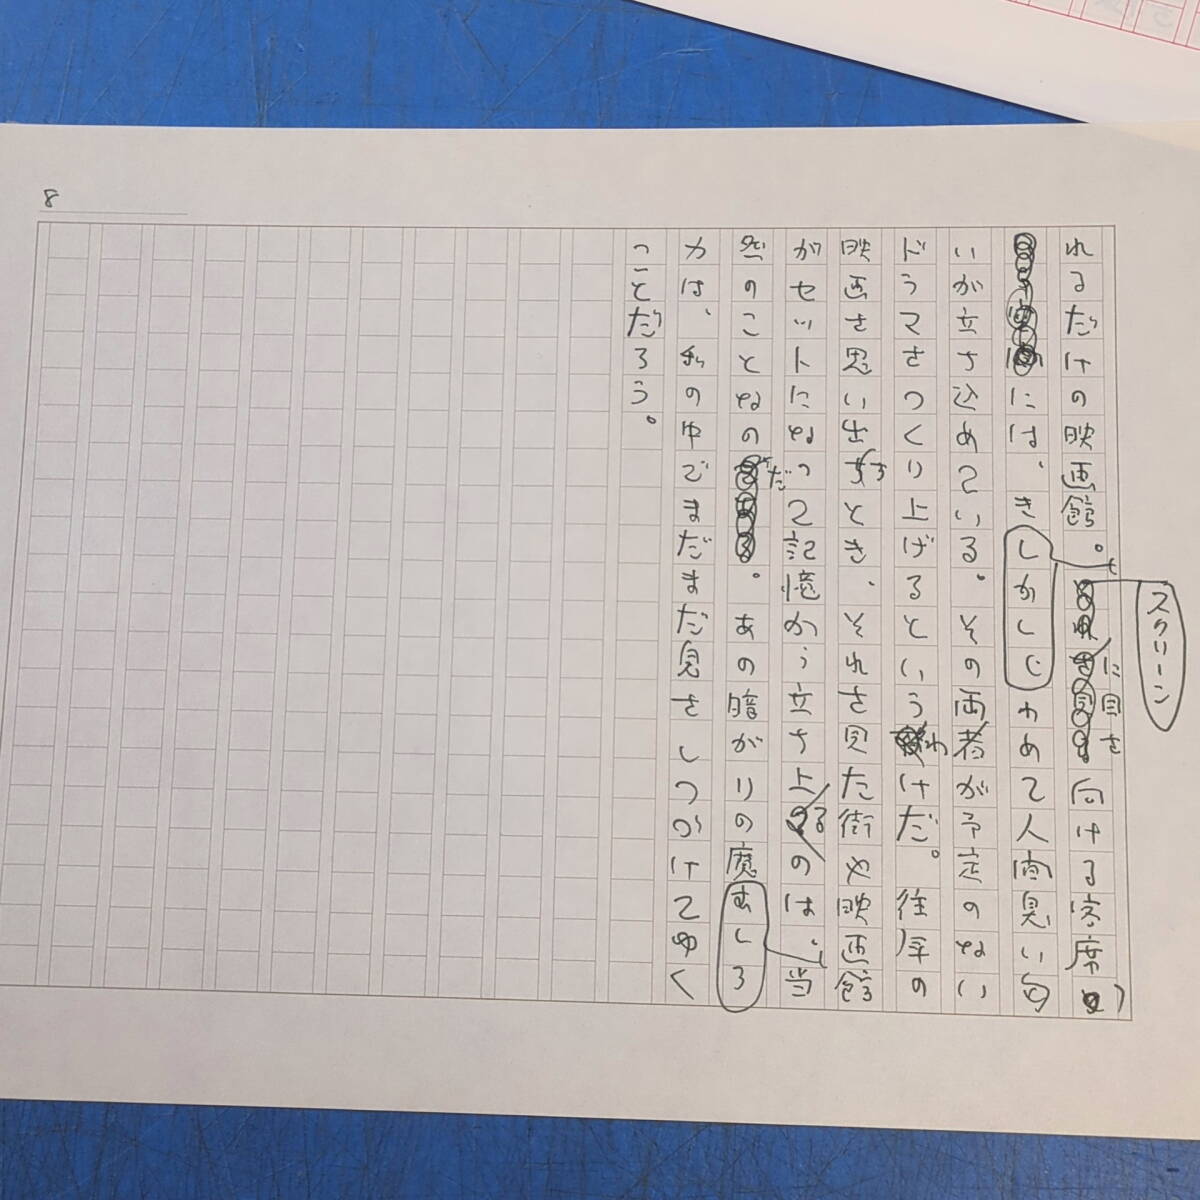 れるだけの映画館。スクリーンに目を向ける客席
には、しかしきわめて人間臭い匂
いが立ち込めている。その両者が予定のない
ドラマをつくり上げるというわけだ。往年の
映画を思い出すとき、それを見た街や映画館
がセットになって記憶から立ち上るのは、むしろ当
然のことなのだ。あの暗がりの魔
力は、私の中でまだまだ息をしつづけてゆく
ことだろう。
8